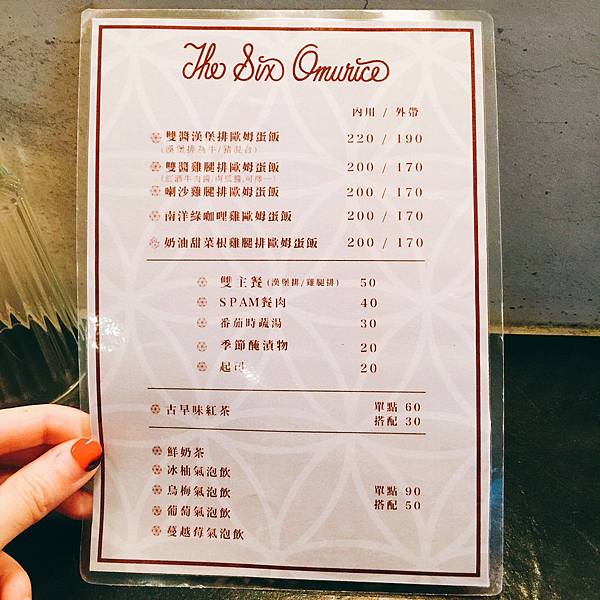 The Six Omurice
內用 / 外帶
雙醬漢堡排歐姆蛋飯 220 / 190
(漢堡排為牛/豬混合)
雙醬雞腿排歐姆蛋飯 200 / 170
(紅酒牛肉醬/南瓜醬,可擇一)
喇沙雞腿排歐姆蛋飯 200 / 170
南洋綠咖哩雞歐姆蛋飯 200 / 170
奶油甜菜根雞腿排歐姆蛋飯 200 / 170
雙主餐 (漢堡排/雞腿排) 50
SPAM餐肉 40
番茄時蔬湯 30
季節醃漬物 20
起司 20
古早味紅茶 單點 60
搭配 30
鮮奶茶
冰柚氣泡飲
烏梅氣泡飲 單點 90
搭配 50
葡萄氣泡飲
蔓越莓氣泡飲